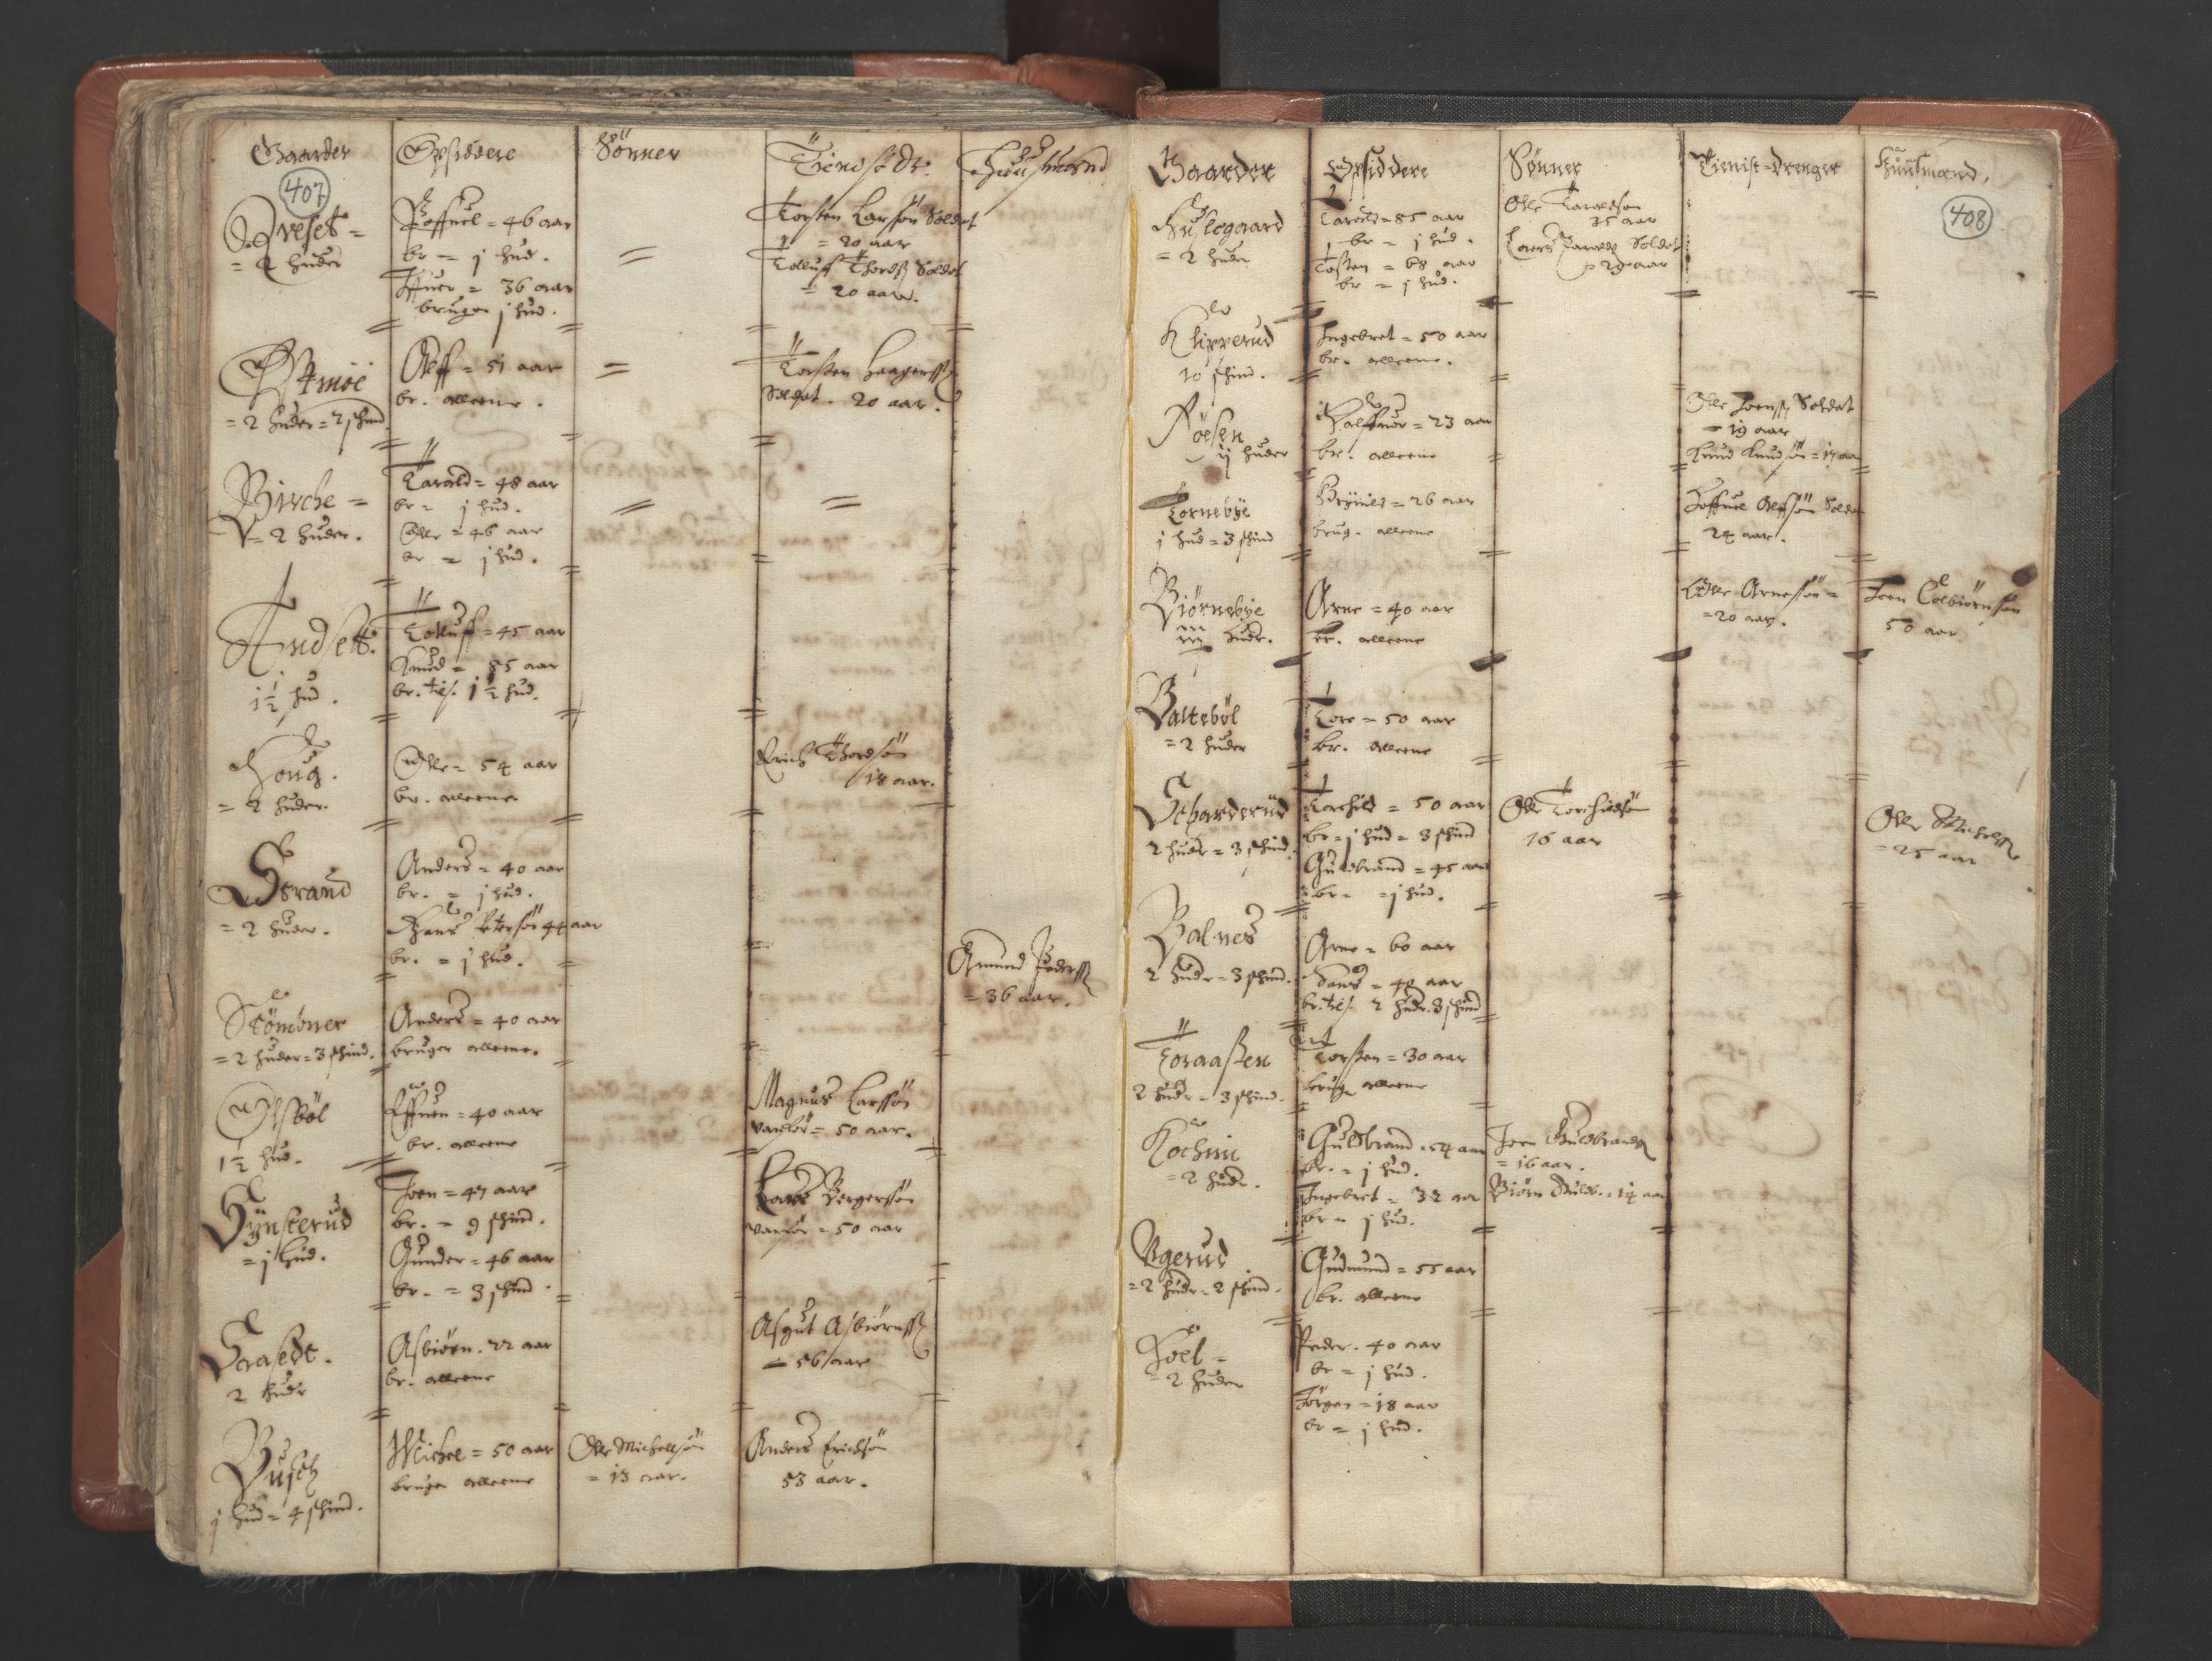 Gaarder
Opsiddere
Sönner
Tienist Dr.
Huusmend
407
= 2 huder
Poffuel = 46 aar
br = j hud.
Iffuer = 36 aar
bruger j hud.
=
Torsten Larsön Soldat
= 20 aar
Tolluff Thordß Soldat
= 20 aar.
Østmoe
= 2 huder = 2 schind
Oleff = 51 aar
br. alleene.
=
Torsten
Soldat. 20 aar.
Birche =
= 2 huder.
Tarald = 48 aar
br = j hud.
Olle = 46 aar
br = j hud.
=
=
Andsett.
1½ hud.
Tolluff = 45 aar
Knud = 85 aar
br. tils. 1½ hud.
Houg.
= 2 huder.
Olle = 54 aar
br. alleene
Erich Thordsön
18 aar.
Strand
= 2 huder.
Anders = 40 aar
br. = j hud.
Hans Petersön 44 aar
br. = j hud.
Amund Pederß
= 36 aar.
Stömbner
= 2 huder = 3 schind.
Anders = 40 aar
bruger alleene.
Olsböl
1½ hud.
Effuen = 40 aar
br. alleene
Magnus Larssön
vanför = 50 aar.
Synsterud
= j hud.
Joen = 47 aar
br. = 9 schind.
Gunder = 46 aar
br. = 3 schind.
Lars Bergersön
vanför = 50 aar
Saastt.
2 hudr
Asbiörn. 72 aar
br. alleene
Asgut Asbiörnß
= 56 aar
j hud = 4 schind.
Michel = 50 aar
bruger alleene
Olle Michellsön
= 13 aar.
Anders Erichsön
53 aar.
Gaarder
Opsiddere
Sönner
Tienist-drenger
Huusmænd.
408
Hulegaard
= 2 hudr
Tarald = 85 aar
br = j hud.
Tosten = 68 aar
br = j hud.
Olle Taraldsön
35 aar
Lars Taraldß Soldat
29 aar
Klipperud
10 schind.
Ingebret = 50 aar
br. alleene.
Röesen
ij huder
Halffuor = 23 aar
br. alleene
Olle Joenß Soldat
= 19 aar
Knud Knudsön = 17 aar
Tornebye
j hud = 3 schind
Brynild = 26 aar
brug. alleene
Poffuel Olefsön Soldat
24 aar.
Biörnebye
iij hudr.
Arne = 40 aar
br. alleene
Olle Arnessön =
= 20 aar.
Joen Colbiörnsön
50 aar
Balteböl
= 2 huder
Tore = 50 aar
br. alleene
Scharderud
2 hudr = 3 schind.
Torchild = 50 aar
br = j hud = 3 schind
Guldbrand = 45 aar
br = j hud.
Olle Torchildsön
16 aar
Olle Michelß
= 25 aar
Balnes
2 hudr = 3 schind.
Arne = 60 aar
Hans = 40 aar
br. tils. 2 hudr. 3 schind
Toraasen
2 hudr = 3 schind.
Torsten = 30 aar
brug. alleene
Kochim
= 2 hudr.
Guldbrand = 54 aar
br. = j hud.
Ingebret = 32 aar
br = j hud.
Joen Guldbrandß
= 16 aar.
Biörn Guldb. = 14 aar
Ugerud
= 2 hudr = 2 schind.
Gudmund = 55 aar
br. alleene
Hoel =
= 2 huder
Peder. 40 aar
br = j hud.
Jörgen = 18 aar
br = j hud.